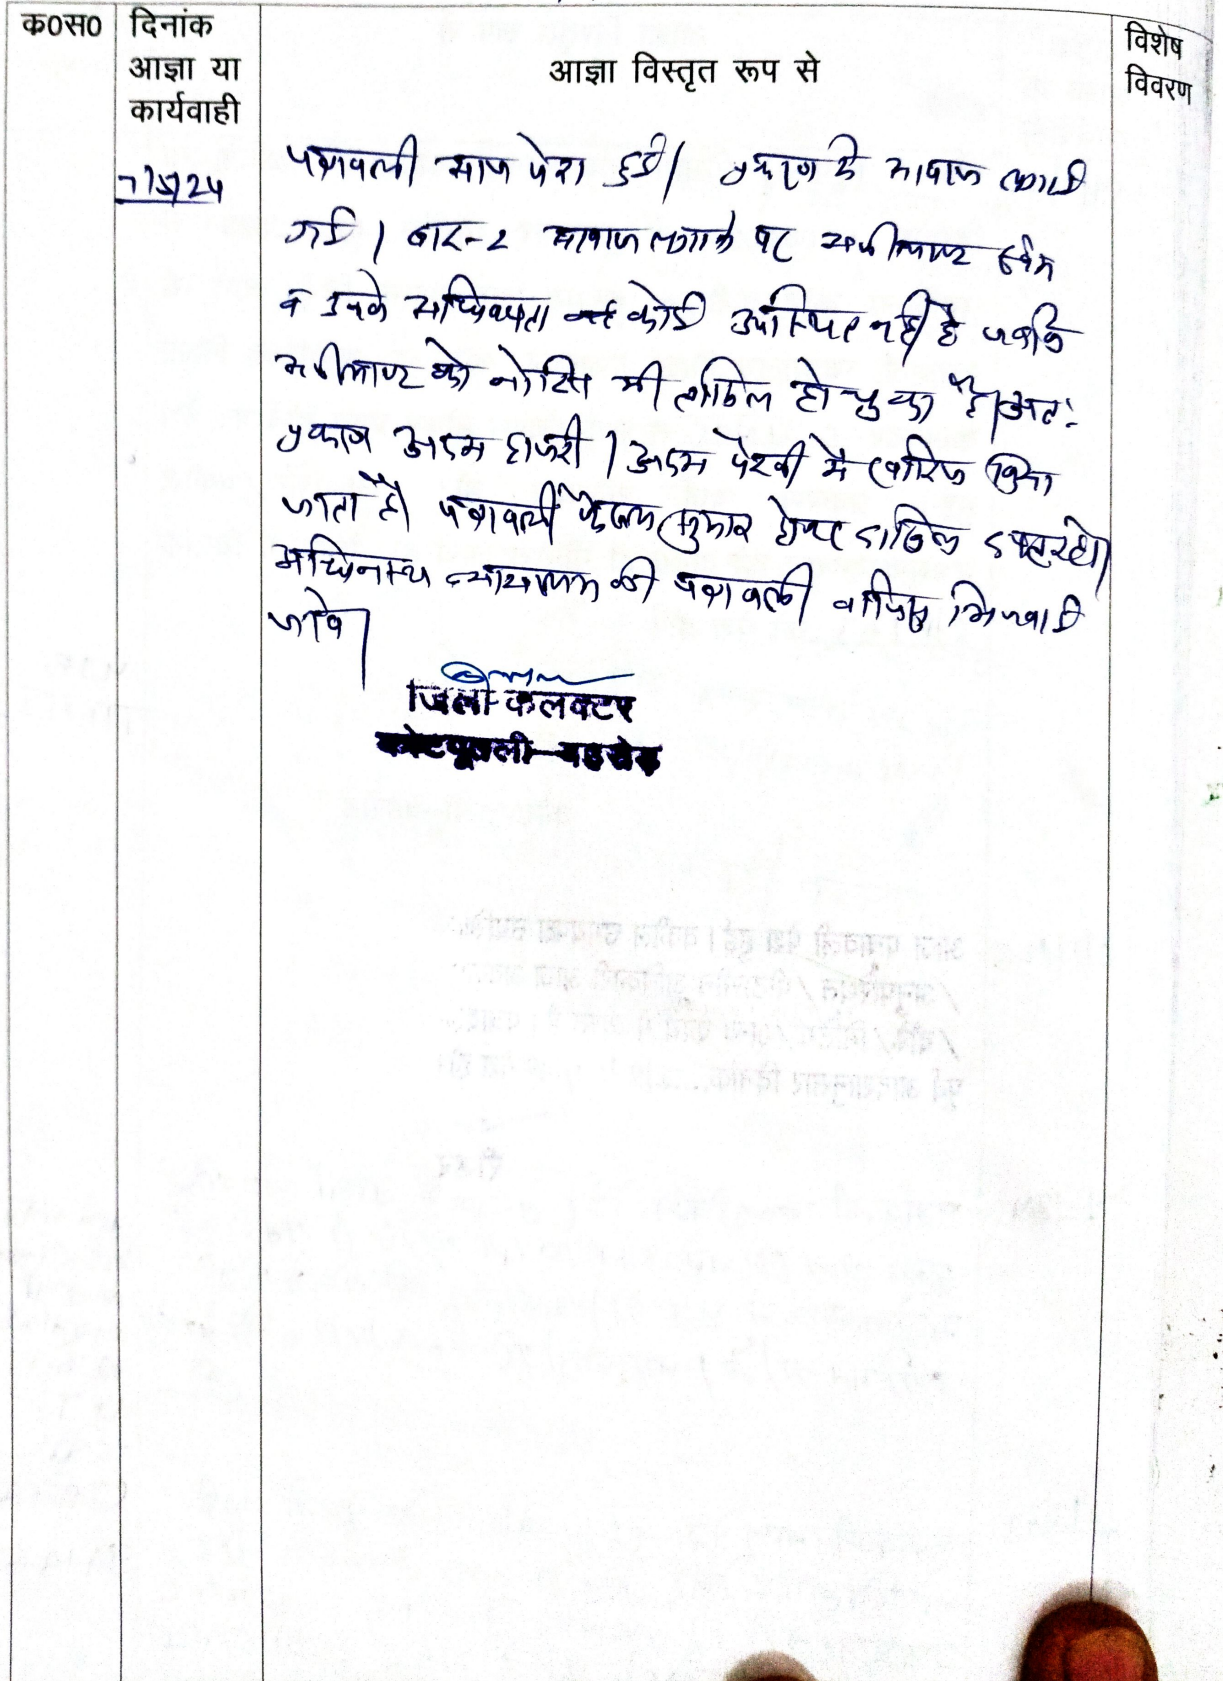 क0स0
दिनांक
आज्ञा या
कार्यवाही
आज्ञा विस्तृत रूप से
विशेष
विवरण
7/5/24
पत्रावली आज पेश हुई। प्रकरण में आवाज लगाई
गई। बार-2 आवाज लगाने पर अपीलाण्ट स्वंय
व उनके अधिवक्ता कोई उपस्थित नहीं है जबकि
अपीलाण्ट को नोटिस भी तामिल हो चुका है। अतः
प्रकरण अदम हाजरी / अदम पैरवी में खारिज किया
जाता है। पत्रावली फैसल शुमार होकर दाखिल दफ्तर हो।
अधिनस्थ न्यायालय की पत्रावली वापिस भिजवाई
जावे।
जिला कलक्टर
कोटपूतली-बहरोड़